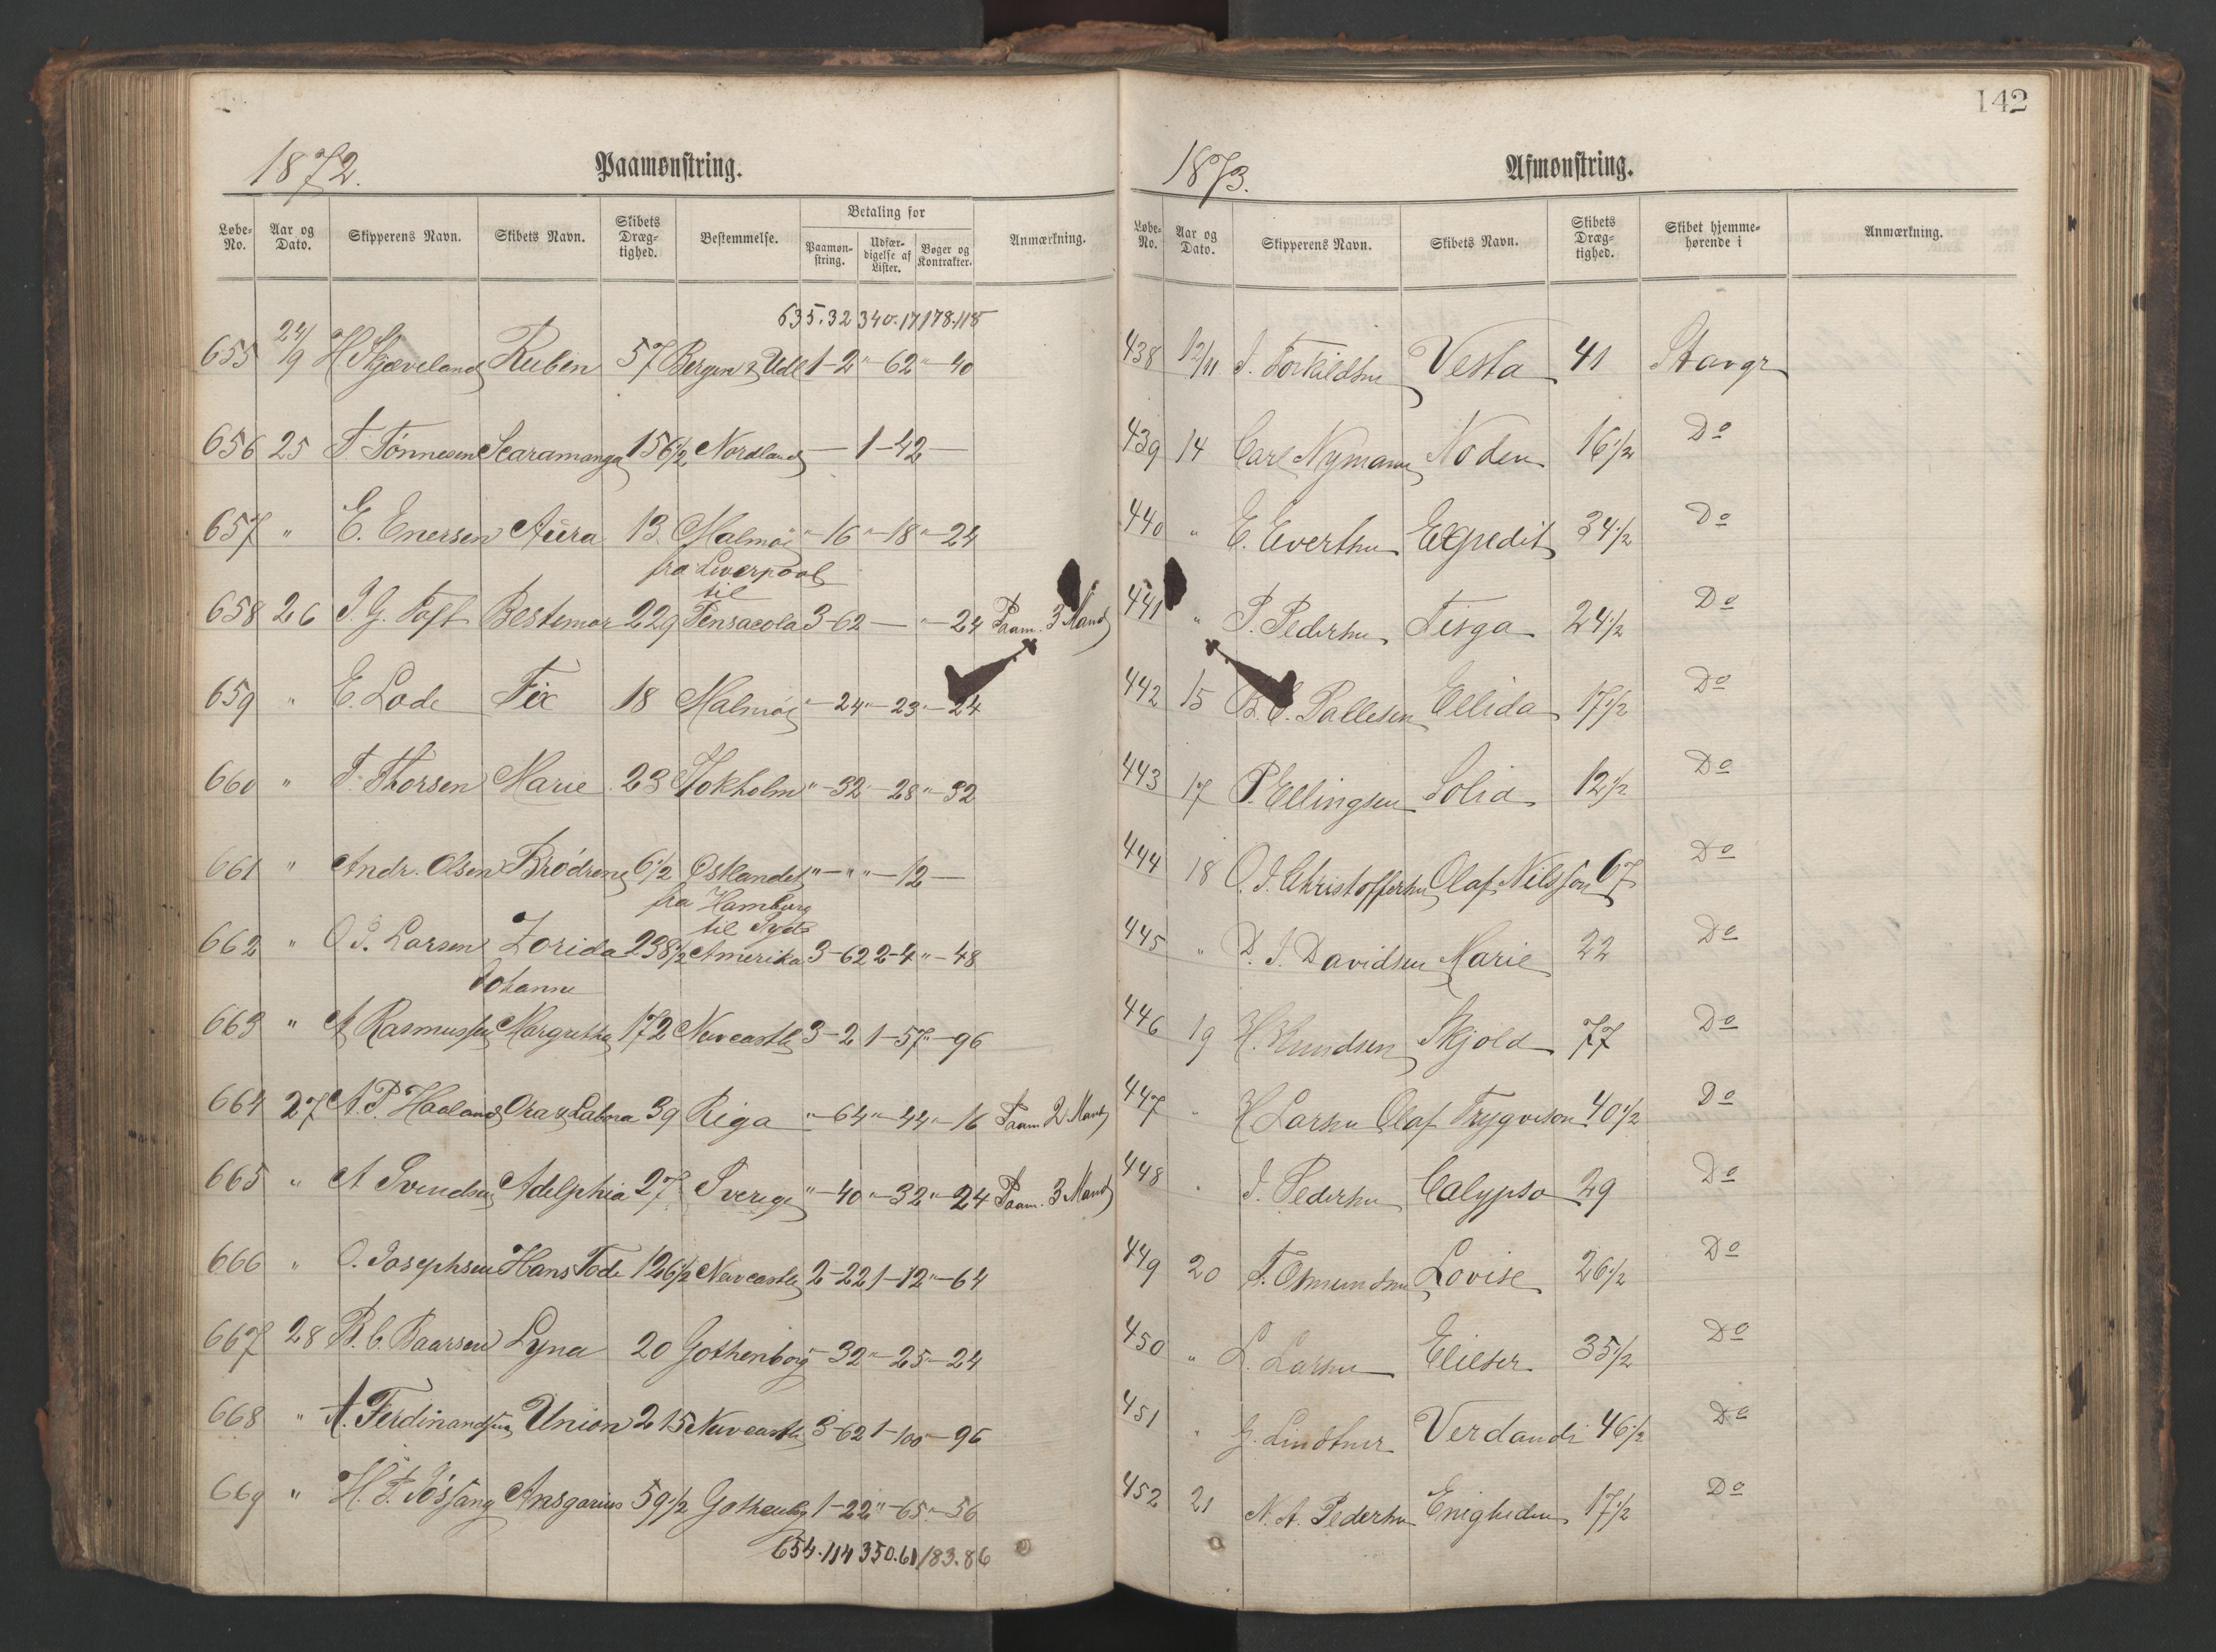 1872. Paamønstring.
Løbe-No. Aar og Dato. Skipperens Navn. Skibets Navn. Skibets Dræg-tighed. Bestemmelse. Betaling for Paamøn-string. Udfær-digelse af Lister. Bøger og Kontrakter. Anmærkning.
635.32 340.17 178.118
655 24/9 H. Skjæveland Ruben 57 Bergen & Udl 1-2 "-62 "-40
656 25 T. Tönnesen Scaramanga 156 1/2 Nordland — 1-42 —
657 " E. Enersen Aüra 13 Malmö "-16 "-18 "-24
fra Liverpool
til
658 26 J. G. Fast Bestemor 229 Pensacola 3-62 — "-24 Paam. 3 Mand
659 " E. Lode Fix 18 Malmö "-24 "-23 "-24
660 " T. Thorsen Marie 23 Stokholm "-32 "-28 "-32
661 " Andr. Olsen Brödrene 6 1/2 Östlandet "-" "-12 —
fra Hamburg
til Syd
662 " O. S. Larsen Zorida 238 1/2 Amerika 3-62 2-4 "-48
Johanne
663 " A Rasmussen Margretha 172 Newcastle 3-2 1-57 "-96
664 27 A. P. Haaland Ora & Labora 39 Riga "-64 "-44 "-16 Paam 2 Mand
665 " A Svendsen Adelphia 27 Sverige "-40 "-32 "-24 Paam. 3 Mand
666 " O. Josephsen Hans Tode 126 1/2 Newcastle 2-22 1-12 "-64
667 28 B. C. Baarsen Lyna 20 Gothenborg "-32 "-25 "-24
668 " A. Ferdinandsen Union 215 Newcastle 3-62 1-100 "-96
669 " H. T. Jössang Ansgarius 59 1/2 Gothenbg 1-22 "-65 "-56
654.114 350.61 183.86
142
1873. Afmønstring.
Løbe-No. Aar og Dato. Skipperens Navn. Skibets Navn. Skibets Dræg-tighed. Skibet hjemme-hørende i Anmærkning.
438 12/11 J. Torkildsen Vesta 41 Stavgr
439 14 Carl Nymann Noden 16 1/2 Do
440 " E. Evertsen Expedit 34 1/2 Do
441 " P. Pedersen Tisga 24 1/2 Do
442 15 B. C. Pallesen Ellida 17 1/2 Do
443 17 P. Ellingsen Solid 12 1/2 Do
444 18 O. J. Christoffersen Olaf Nilsson 67 Do
445 " D. J. Davidsen Marie 22 Do
446 19 H. Knudsen Skjold 77 Do
447 " H Larsen Olaf Trygveson 40 1/2 Do
448 " J. Pedersen Calypso 29 Do
449 20 T. Osmundsen Lovise 26 1/2 Do
450 " L. Larsen Elieser 35 1/2 Do
451 " G. Lindtner Verdandi 46 1/2 Do
452 21 N. A. Pedersen Enigheden 17 1/2 Do